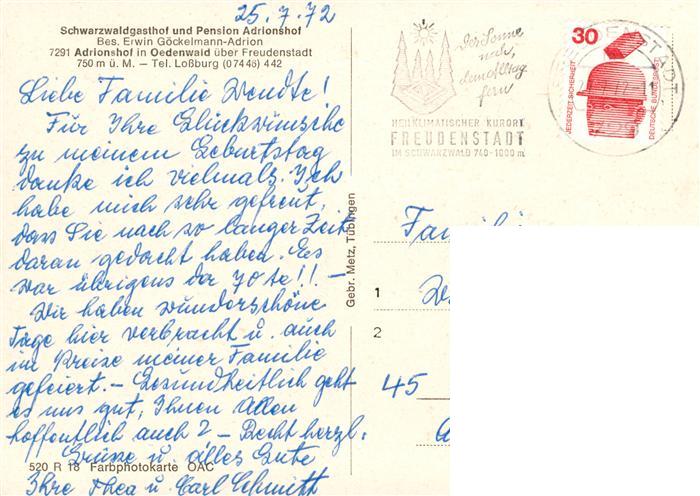 25.7.72
Schwarzwaldgasthof und Pension Adrionshof
Bes. Erwin Göckelmann-Adrion
7291 Adrionshof in Oedenwald über Freudenstadt
750 m ü. M. – Tel. Loßburg (07446) 442
Liebe Familie Wendte!
Für Ihre Glückwünsche
zu meinem Geburtstag
danke ich vielmals. Ich
habe mich sehr gefreut,
dass Sie nach so langer Zeit
daran gedacht haben. Es
war übrigens der 70te!! –
Wir haben wunderschöne
Tage hier verbracht u. auch
im Kreise meiner Familie
gefeiert. – Gesundheitlich geht
es uns gut, Ihnen Allen
hoffentlich auch? – Recht herzl.
Grüsse u. alles Gute
Ihre Thea u. Carl Schmitt
520 R 18 Farbphotokarte OAC
Gebr. Metz, Tübingen
Der Sonne
nah,
dem Alltag
fern
HEILKLIMATISCHER KURORT
FREUDENSTADT
IM SCHWARZWALD 740-1000 m
30
JEDERZEIT SICHERHEIT
DEUTSCHE BUNDESPOST
FREUDENSTADT
Familie
1
2
45